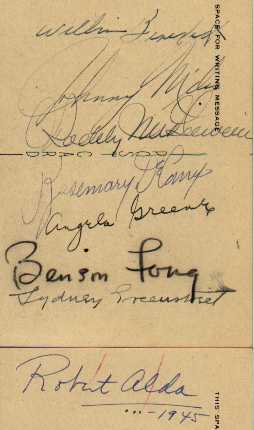 William
Johnny
Roddy McDowall
SPACE FOR WRITING MESSAGE
POST CARD
Rosemary
Angela Greene
Benson Fong
Sydney Greenstreet
Robert Alda
... - 1945
THIS SPA